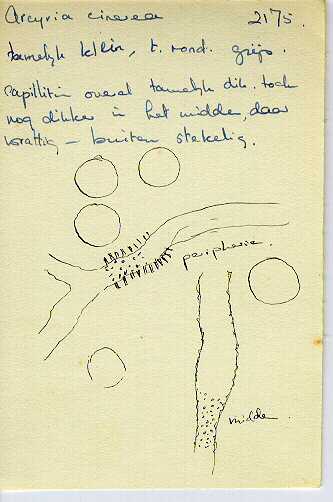 Arcyria cinerea 2175.
tamelijk klein, t. rond. grijs.
capillitin overal tamelijk dik. toch
nog dikker in het midden, daar
wrattig – buiten stekelig.
peripherie.
midden.